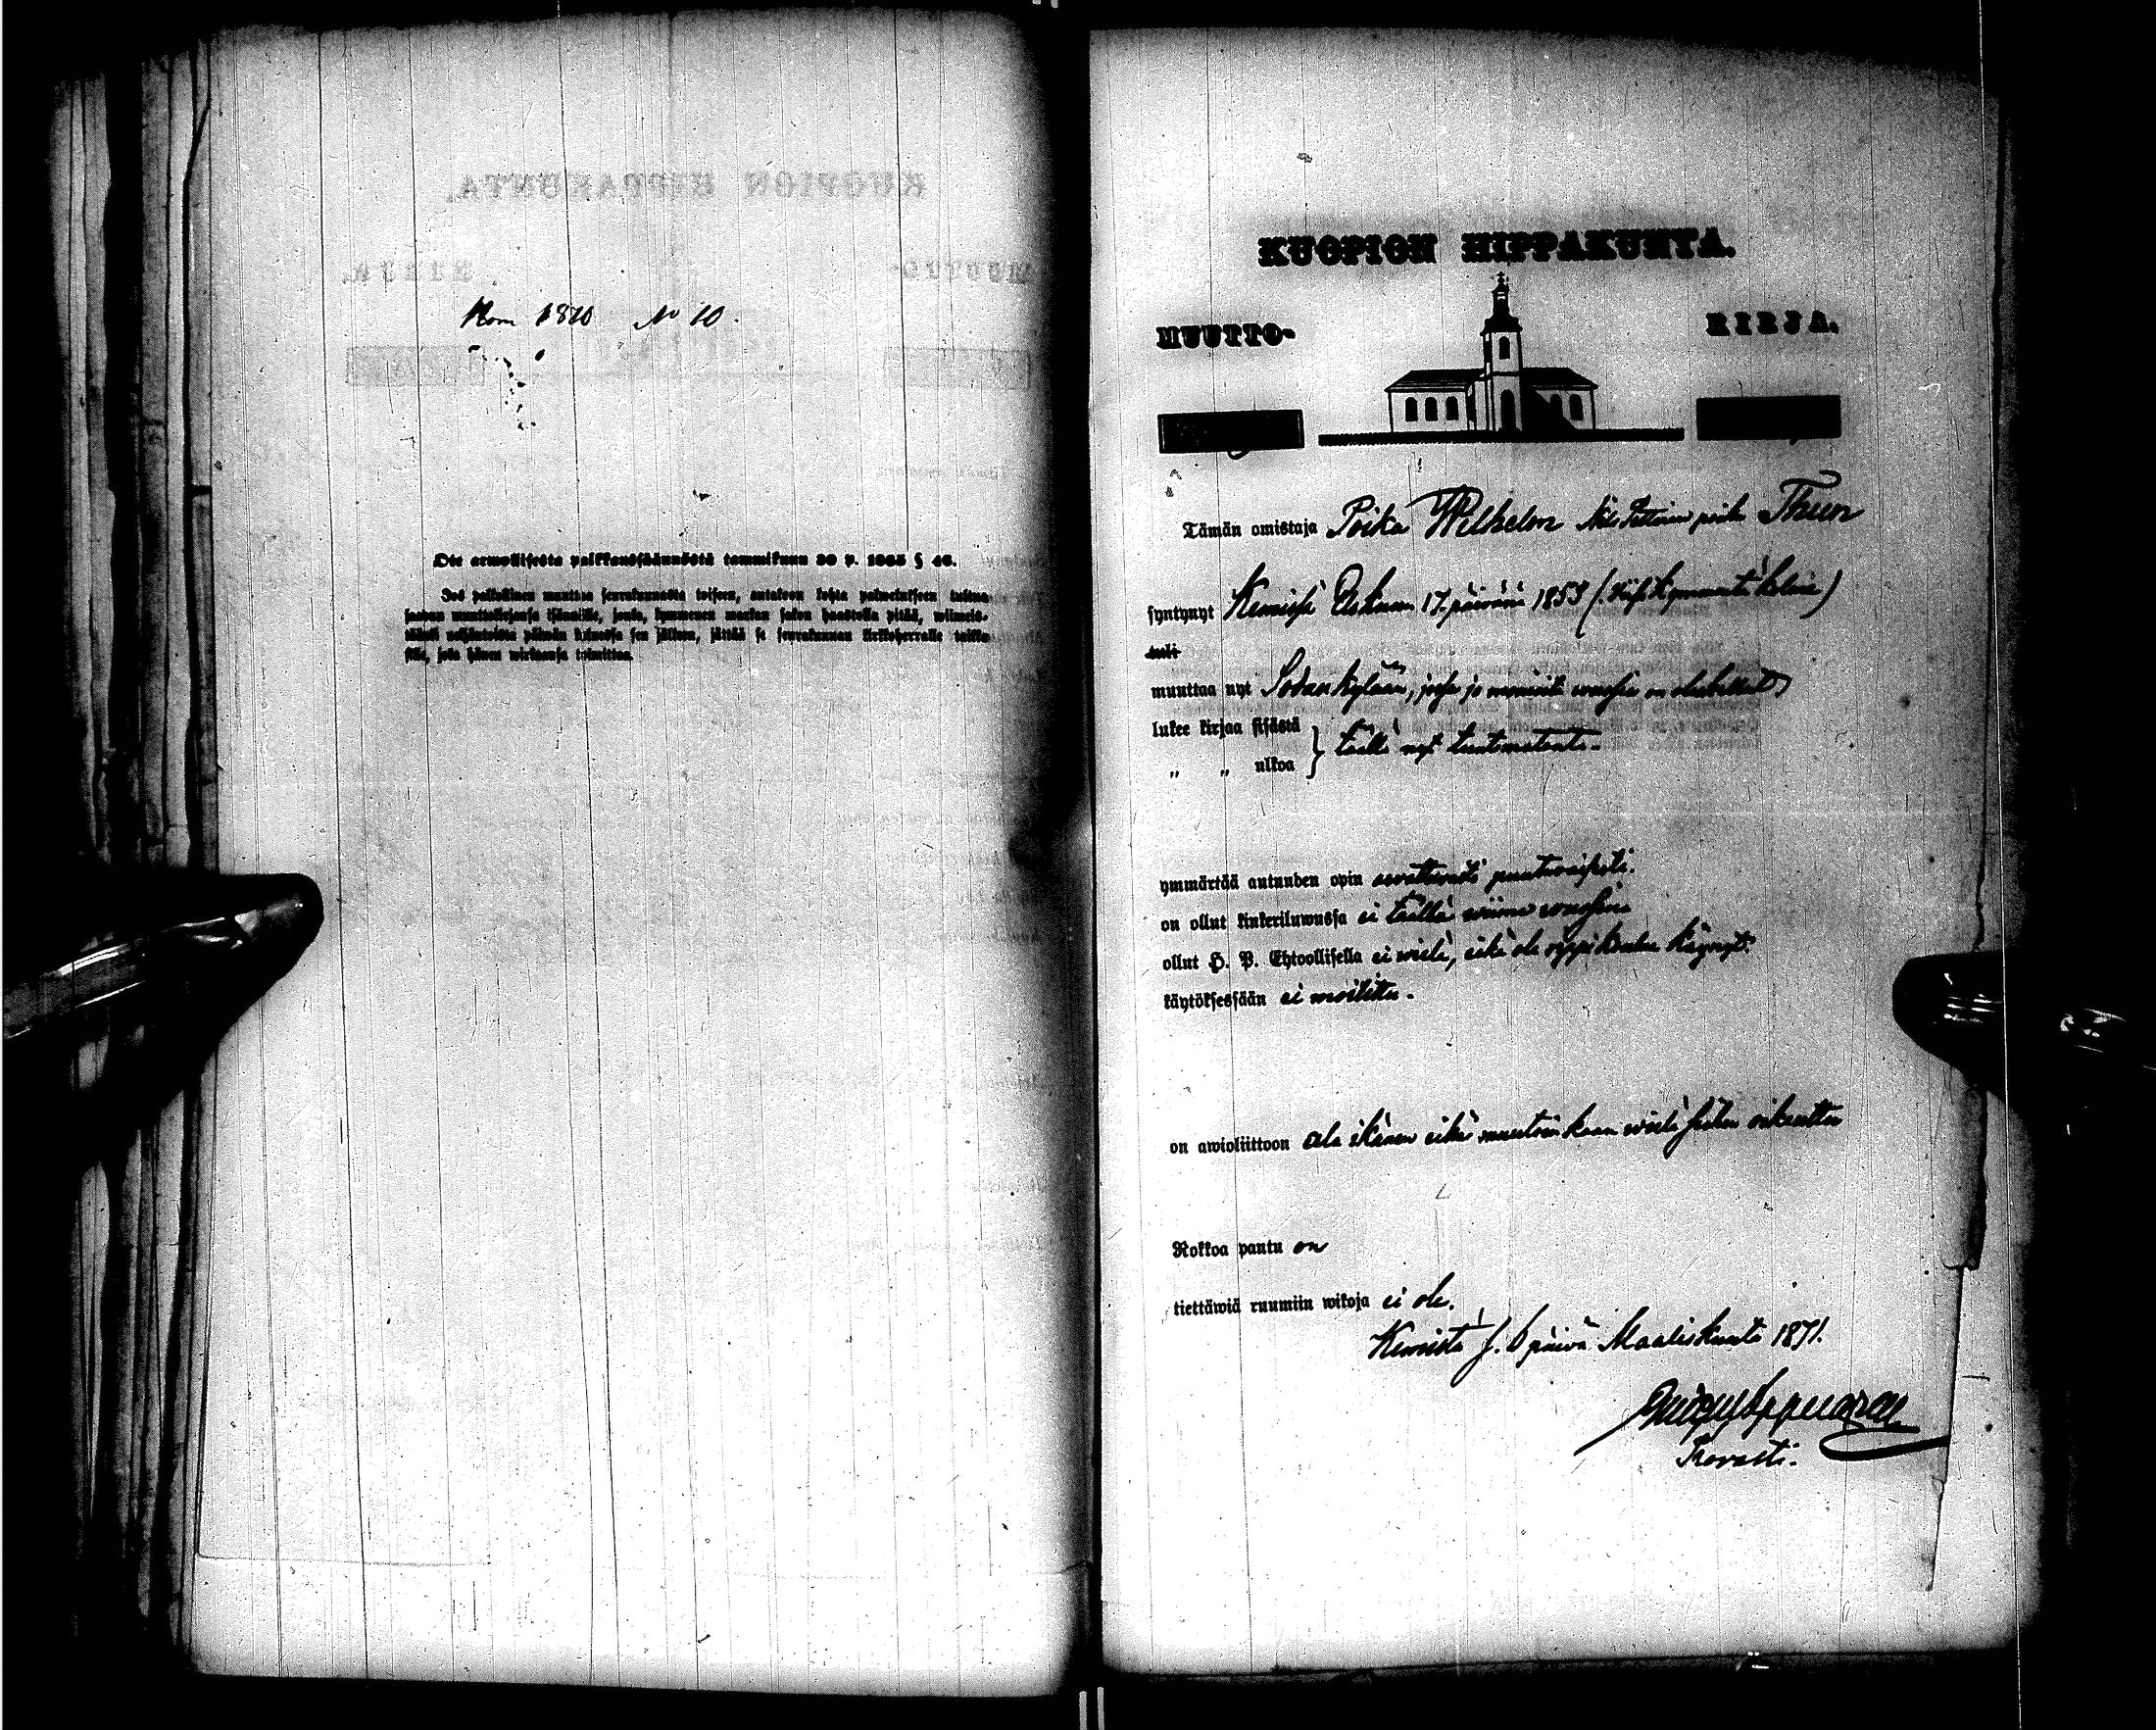 Kom 1870 No 10.
Ote armollisesta palkkaussäännöstä tammikuun 30 p. 1865 § 46.
Jos palkollinen muuttaa seurakunnasta toiseen, antakoon kohta palwelukseen tultua
saadun muuttokirjansa isännälle, jonka, kymmenen markan sakon haastolla pitää, wiimeis-
täänki neljäntoista päiwän kuluessa sen jälkeen, jättää se seurakunnan kirkkoherralle taikka
sille, joka hänen wirkaansa toimittaa.
KUOPION HIPPAKUNTA.
MUUTTO- KIRJA.
Tämän omistaja Poika Wilhelm Nils Petterin poika Thun
syntynyt Kemissä 17. päivänä 1853 (wiisikymmentä kolme)
tuli
muuttaa nyt Sodankylään, jossa jo monioita wuosia on oleskellut
lukee kirjaa sisästä } täällä nyt tuntematonta.
„ „ ulkoa
ymmärtää autuuden opin arvattavasti puuttuvaisesti.
on ollut kinkeriluwussa ei täällä wiime wuosina
ollut H. P. Ehtoollisella ei wielä, eikä ole rippikoulua käynyt.
käytöksessään ei moitittu.
on awioliittoon ala ikäinen eikä muutoinkaan wielä siihen oikeutettu
Rokkoa pantu on
tiettäwiä ruumiin wikoja ei ole.
Kemistä 6 päivä Maaliskuuta 1871.
Rovasti.